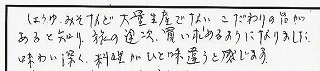 しょうゆ、みそなど大量生産でないこだわりの品が
あると知り、旅の途次、買い求めるようになりました。
味わい深く、料理がひと味違うと感じます。